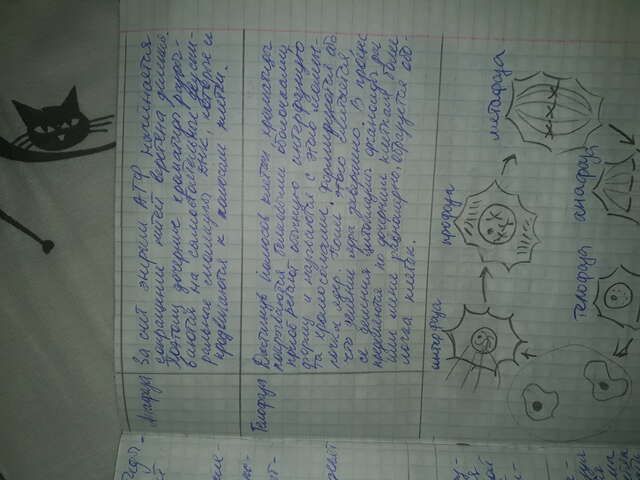 Анафаза
За счёт энергии АТФ начинается
сокращение нитей веретена деления.
Поэтому дочерние хроматиды разры-
ваются на самостоятельные двуспи-
ральные молекулы ДНК, которые и
продвигаются к полюсам клетки.
Телофаза
Достигнув полюсов клетки, хроматиды
покрываются белковыми оболочками,
приобретают обычную интерфазную
форму и называются с этого момен-
та хромосомами. Формируются обо-
лочки ядер. После этого считается,
что деление ядра завершено. В процес-
се деления цитоплазмы органоиды рас
пределяются по дочерним клеткам более
или менее равномерно, образуется обо-
лочка клеток.
интерфаза
профаза
метафаза
телофаза
анафаза